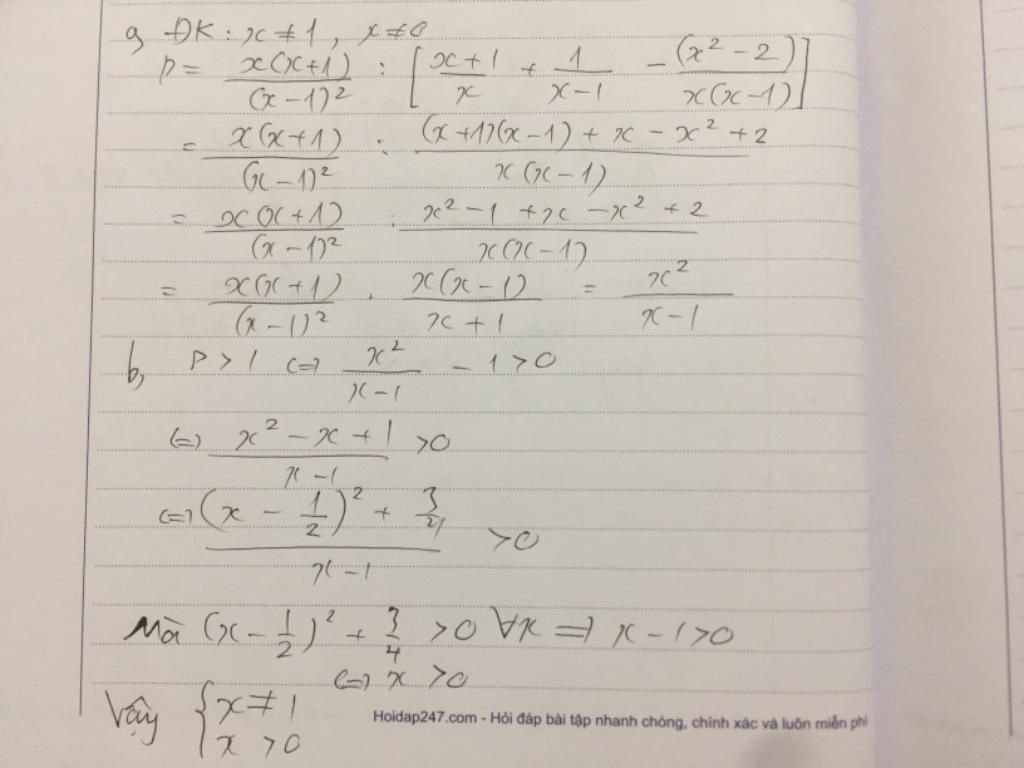 a, ĐK: x ≠ 1, x ≠ 0
P = x(x+1)/(x-1)² : [(x+1)/x + 1/(x-1) - (x²-2)/(x(x-1))]
= x(x+1)/(x-1)² : ((x+1)(x-1) + x - x² + 2)/(x(x-1))
= x(x+1)/(x-1)² : (x² - 1 + x - x² + 2)/(x(x-1))
= x(x+1)/(x-1)² . x(x-1)/(x+1) = x²/(x-1)
b, P > 1 <=> x²/(x-1) - 1 > 0
<=> (x² - x + 1)/(x-1) > 0
<=> ((x - 1/2)² + 3/4)/(x-1) > 0
Mà (x - 1/2)² + 3/4 > 0 ∀x => x - 1 > 0
<=> x > 0
Vậy { x ≠ 1
x > 0
Hoidap247.com - Hỏi đáp bài tập nhanh chóng, chính xác và luôn miễn phí